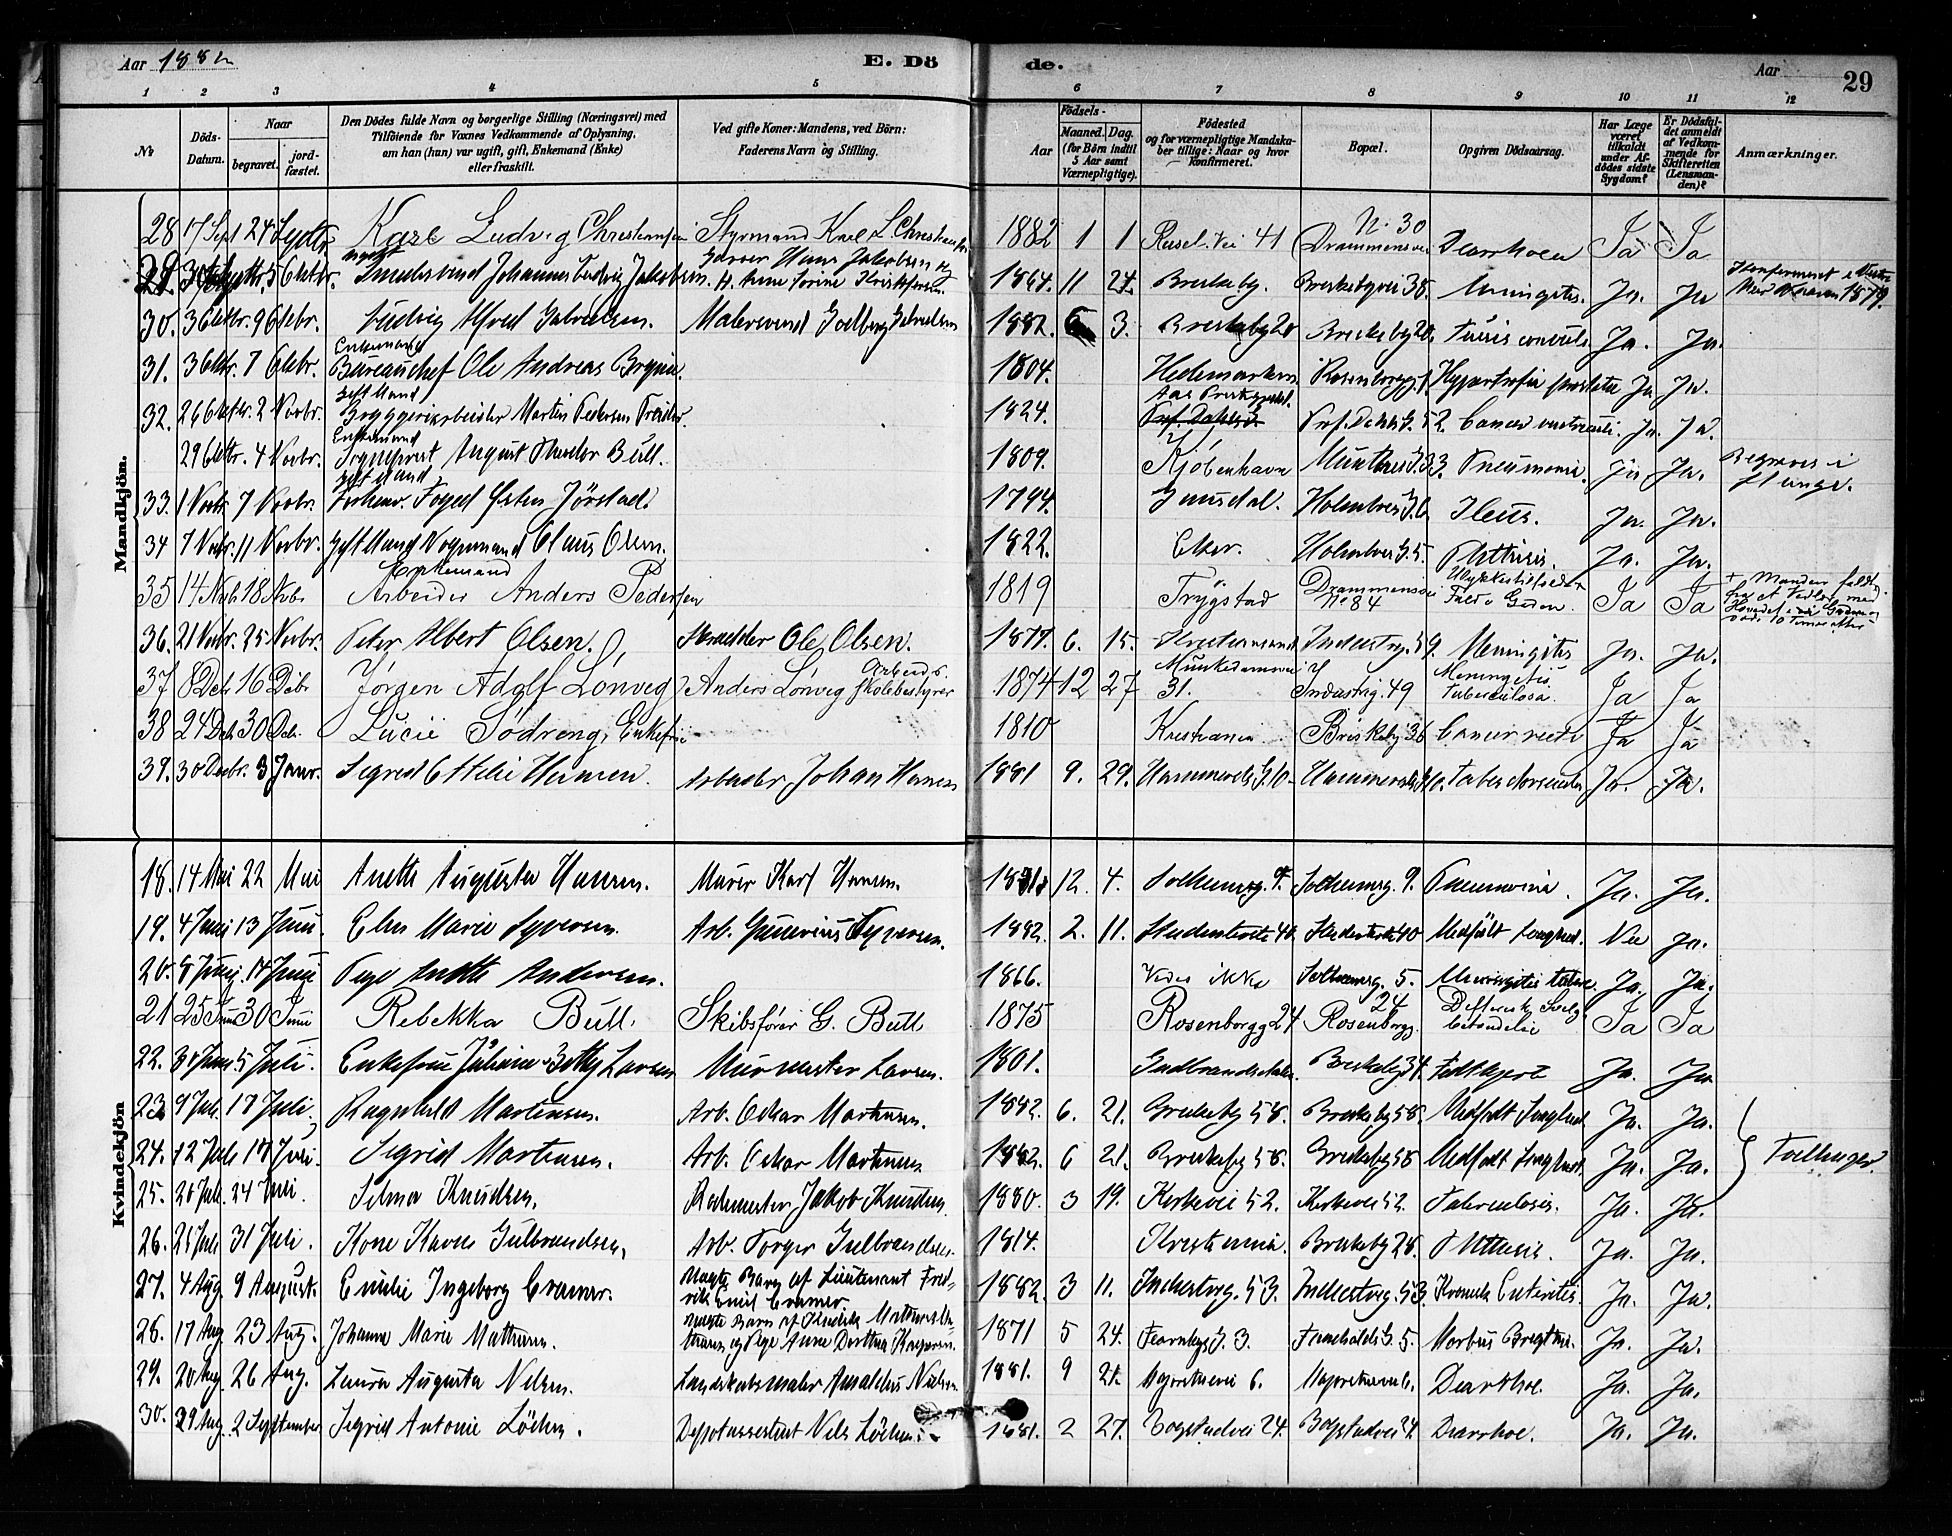 Aar 1882
E. Dö
de.
Aar
29
1 2 3 4 5 6 7 8 9 10 11 12
№
Döds-Datum.
Naar
begravet.
jord-fæstet.
Den Dödes fulde Navn og borgerlige Stilling (Næringsvei) med
Tilföiende for Voxnes Vedkommende af Oplysning,
om han (hun) var ugift, gift, Enkemand (Enke)
eller fraskilt.
Ved gifte Koner: Mandens, ved Börn:
Faderens Navn og Stilling.
Födsels-
Aar
Maaned. Dag.
(for Börn indtil
5 Aar samt
Værnepligtige).
Födested
og for værnepligtige Mandska-
ber tillige: Naar og hvor
konfirmeret.
Bopæl.
Opgiven Dödsaarsag.
Har Læge
været
tilkaldt
under Af-
dödes sidste
Sygdom?
Er Dödsfal-
det anmeldt
af Vedkom-
mende for
Skifteretten
(Lensman-
den)?
Anmærkninger.
Mandkjön.
28 17 Sept 24 Septbr. Karl Ludvig Christiansen Styrmand Karl L. Christiansen 1882 1 1 Russel. Vei 41 N. 30 Drammensvei Diarrhoea Ja Ja
29. 5 Oktbr. Johannes Ludvig Jakobsen 1864. 11 24. Briskeby. Briskebyvei 38. Meningitis. Ja. Ja
30. 3 Oktbr. 9 Oktbr. Ludvig Alfred Malersvend 1882. 3. Briskeby 28 Briskeby 28. Tussis convuls. Ja. Ja.
31. 3 Oktbr. 7 Oktbr. Enkemand
Bureauchef Ole Andreas 1804. Hedemarken Rosenborgg. Hypertrofia prostata Ja. Ja.
32. 26 Oktbr. 2 Novbr. gift Mand
Bryggeriarbeider Martin Pedersen 1824. Aas Præstegjeld. Prof. Dahls G. 52. Cancer ventriculi. Ja. Ja.
29 Oktbr. 4 Novbr. Enkemand
Sogneprest August Theodor Bull. 1809. Kjöbenhavn Munthes G. 33. Pneumonia. Ja Ja. Begraves i
33. 1 Novbr. 7 Novbr. gift Mand
Foged Jörstad 1794. Holmboes G. 6 Ileus. Ja. Ja.
34 7 Novbr. 11 Novbr. gift Mand Vognmand Claus Olsen. 1822. Eker. Holmboes G. 5. Phthisis. Ja. Ja.
35 14 Novb 18 Novbr Enkemand
Arbeider Anders Pedersen 1819 Trygstad Drammensvei
No 84 Ulykkestilfælde +
Fald i Gaden. Ja Ja + Manden faldt
36. 21 Novbr. 25 Novbr. Peter Albert Olsen. Skrædder Ole Olsen. 1877. 6. 15. Kristiansund Industrig. 59. Meningitis Ja. Ja.
37 8 Debr 16 Debr Jörgen Adolf Lönvig Anders Lönvig Arbeids.
skolebestyrer 1874 12 27 Munkedamsvei
31. Industrig. 49 Meningitis
tuberculosa. Ja Ja
38 24 Debr 30 Debr. Lucie Södring, Enkefrue 1810 Kristiania Briskeby 36 Cancer recti Ja Ja
39. 30 Decbr. 3 Janr. Sigrid Ottilie Hansen. Arbeider Johan Hansen 1881 9. 29. Hammersts G. 10. Hammersts G. 10. Tabes dorsualis Ja. Ja.
Kvindekjön
18. 14 Mai 22 Mai Anette Augusta Hansen. Murer Karl Hansen. 1881. 12. 4. Solheimsg. 9. Solheimsg. 9. Pneumonia. Ja. Ja.
19. 4 Juni 13 Juni. Elen Marie Syversen. Arb. Gunerius Syversen. 1882. 2. 11. Medfödt Svaghed. Nei Ja.
20. 8 Juni. 14 Juni Pige Anette Andersen. 1866. Vides ikke Solheimsg. 5. Meningitis tuberc. Ja. Ja.
21 25 Juni 30 Juni Rebekka Bull. Skibsförer G. Bull 1875 Rosenborgg 24 Rosenborgg. 24 Difterisk Svælg-
betændelse Ja Ja
22. 30 Juni 5 Juli. Enkefrue Juliane Betty Larsen Murmester Larsen. 1801. Gudbrandsdalen. Briskeby 34. Fedthjerte Ja. Ja
23. 9 Juli 17 Juli. Ragnhild Martinsen. Arb. Oskar Martinsen. 1882. 6. 21. Briskeby 58. Briskeby 58. Medfödt Svaghed Ja. Ja.
24. 12 Juli 17 Juli. Sigrid Martinsen. Arb. Oskar Martinsen 1882. 6 21. Briskeby 58. Briskeby 58 Medfödt Svaghed. Ja. Ja. Tvillinger
25. 20 Juli. 24 Juli. Selma Knudsen. Rodemester Jakob Knudsen. 1880. 3 19. Kirkevei 52. Kirkevei 52. Tuberculosis. Ja. Ja.
26. 25 Juli 31 Juli. Kone Karen Gulbrandsen, Arb. Torger Gulbrandsen. 1814. Kristiania. Briskeby 28. Phthisis. Ja. Ja.
27. 4 Aug. 9 August. Emilie Ingeborg Cramer. Uægte Barn af Lieutenant Fred-
rik Emil Cramer. 1882. 3 11. Industrig. 53. Industrig. 53. Kronisk Enteritis. Ja. Ja.
28. 17 Aug. 23 Aug. Johanne Marie Mathisen. Uægte Barn af
og Pige Anne Dorthea 1871 5 24. Fearnleys G. 3. G. 5. Morbus Brightii. Ja. Ja.
29. 20 Aug. 26 Aug. Laura Augusta Nilsen. Landskabsmaler Amaldus Nielsen. 1881. 9 21. Majorstuevei 6. Majorstuevei 6. Diarrhoe. Ja. Ja.
30. 29 Aug. 2 September Sigrid Antonie Löchen. Depotassistent Nils Löchen. 1881. 2 27. Bogstadvei 24. Bogstadvei 24 Diarrhoe. Ja. Ja.